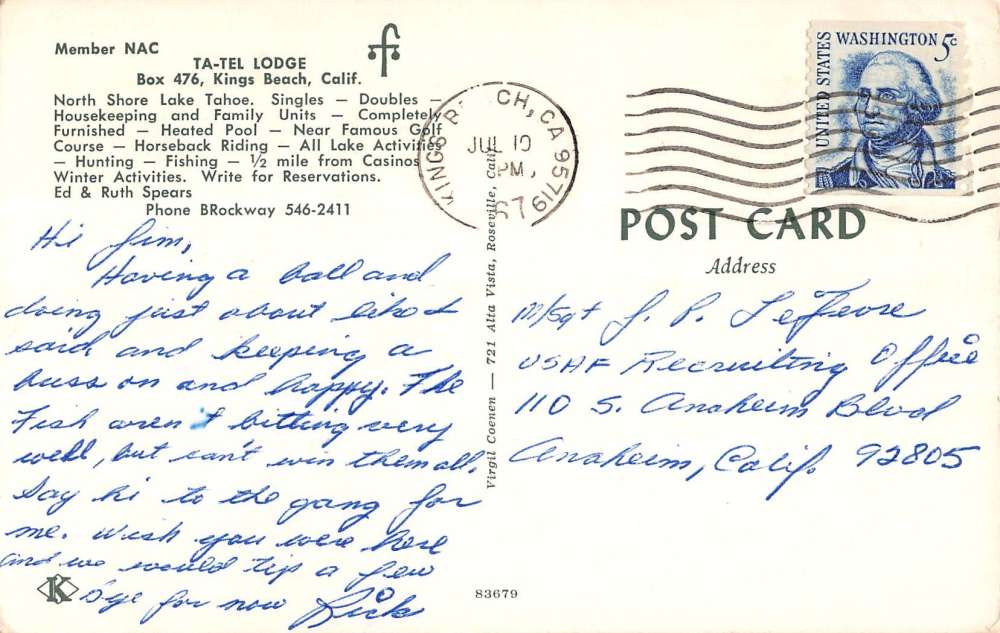 Member NAC
TA-TEL LODGE
Box 476, Kings Beach, Calif.
North Shore Lake Tahoe. Singles — Doubles —
Housekeeping and Family Units — Completely
Furnished — Heated Pool — Near Famous Golf
Course — Horseback Riding — All Lake Activities
— Hunting — Fishing — ½ mile from Casinos
Winter Activities. Write for Reservations.
Ed & Ruth Spears
Phone BRockway 546-2411
Hi Jim,
Having a ball and
doing just about like I
said and keeping a
buss on and happy. The
Fish aren't bitting very
well, but can't win them all.
Say hi to the gang for
me. Wish you were here
and we would tip a few
Bye for now Rick
K
Virgil Coenen — 721 Alta Vista, Roseville, Calif.
83679
KINGS BEACH, CA 95719
JUL 10
PM
67
UNITED STATES
WASHINGTON 5c
POST CARD
Address
M/Sgt J. P. LeFevre
USAF Recruiting Office
110 S. Anaheim Blvd
Anaheim, Calif. 92805